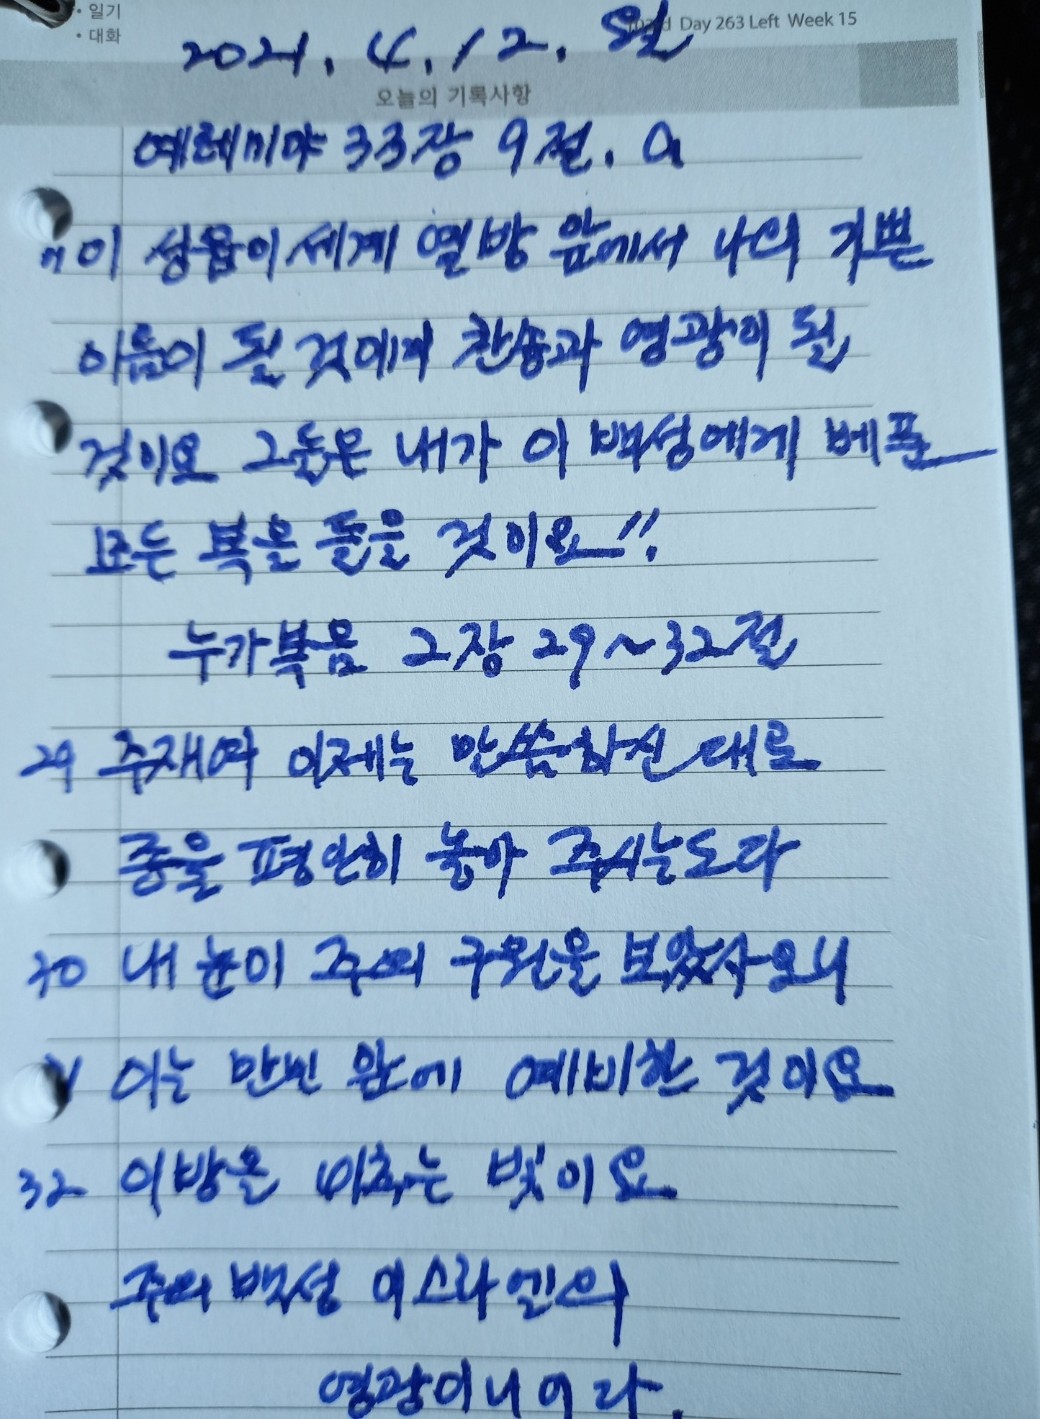 • 일기
• 대화
Day 263 Left Week 15
2021. 4. 12. 월
오늘의 기록사항
예레미야 33장 9절. a
"이 성읍이 세계 열방 앞에서 나의 기쁜
이름이 될 것이며 찬송과 영광이 될
것이요 그들은 내가 이 백성에게 베푼
모든 복을 들을 것이요!!
누가복음 2장 29~32절
29 주재여 이제는 말씀하신 대로
종을 평안히 놓아 주시는도다
30 내 눈이 주의 구원을 보았사오니
31 이는 만민 앞에 예비한 것이요
32 이방을 비추는 빛이요
주의 백성 이스라엘의
영광이니이다.